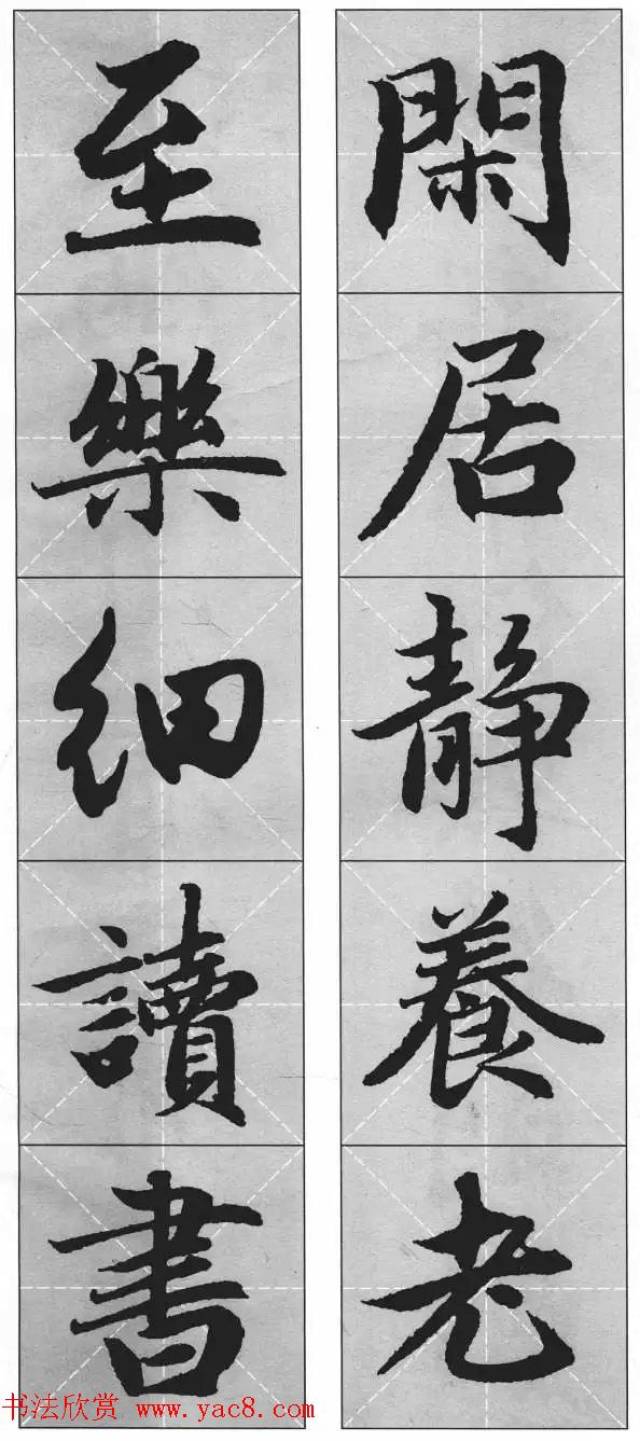 閑居静養老
至樂細讀書
书法欣赏 www.yac8.com